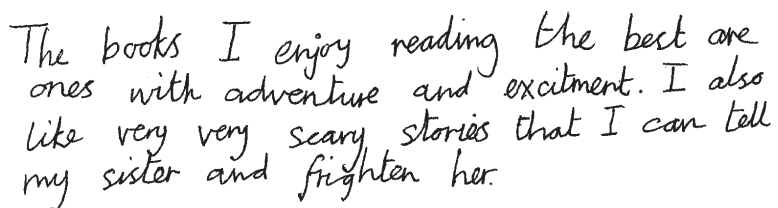 The books I enjoy reading the best are
ones with adventure and excitment. I also
like very very scary stories that I can tell
my sister and frighten her.